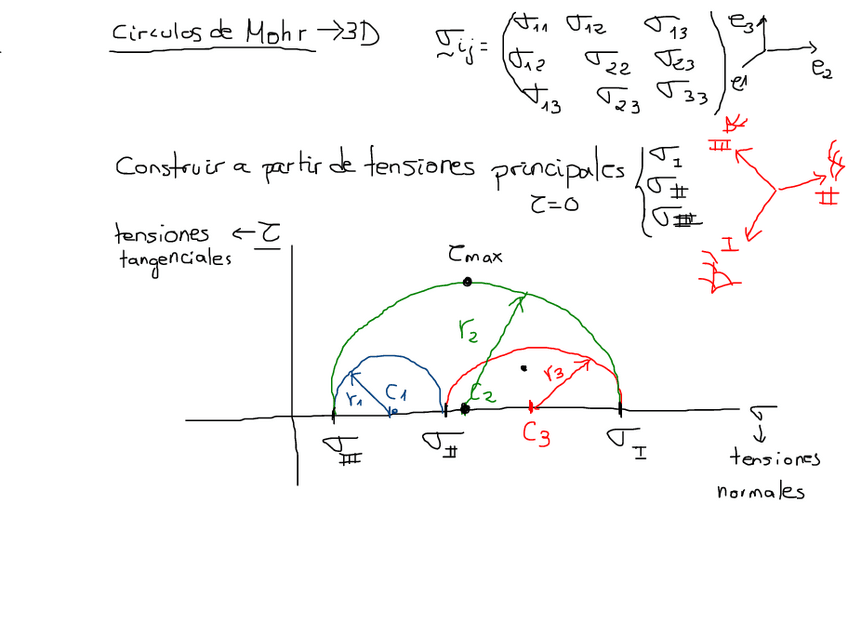 Circulos de Mohr → 3D
σij = (σ11 σ12 σ13
σ12 σ22 σ23
σ13 σ23 σ33)
e3
e1
e2
Construir a partir de tensiones principales { σI
σII
σIII
τ=0
III
II
I
tensiones ← τ
tangenciales
τmax
r2
r1
C1
C2
r3
C3
σIII
σII
σI
σ
↓
tensiones
normales